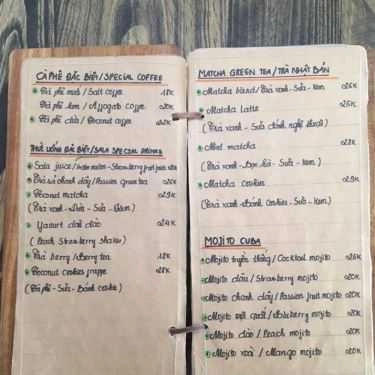 CÀ PHÊ ĐẶC BIỆT/SPECIAL COFFEE
Cà phê muối/Salt coffee 18K
Cà phê kem/Affogato coffee
Cà phê dừa/Coconut coffee
THỨC UỐNG ĐẶC BIỆT/SALA SPECIAL DRINKS
Sala juice/
Trà sữa chanh dây/Passion green tea
Coconut matcha 29K
(Trà xanh - Dừa - Sữa - Kem)
Yaourt đá đào
(Peach Strawberry
Trà berry/Berry tea 18K
Coconut cookies frappe 28K
(Cà phê - Sữa - Bánh cookie)
MATCHA GREEN TEA/TRÀ NHẬT BẢN
Matcha
(Trà xanh - Sữa - Kem)
Matcha Latte 25K
(Trà xanh - Sữa đánh nghệ thuật)
Mint matcha 28K
(Trà xanh - Bạc hà - Sữa - Kem)
Matcha Cookies 29K
(Trà xanh - Bánh Cookies - Sữa - Kem)
MOJITO CUBA
Mojito truyền thống/Cocktail mojito
Mojito dâu/Strawberry mojito 20K
Mojito chanh dây/Passion fruit mojito 20K
Mojito việt quất/Blueberry mojito 20K
Mojito đào/Peach mojito 20K
Mojito xoài/Mango mojito 20K